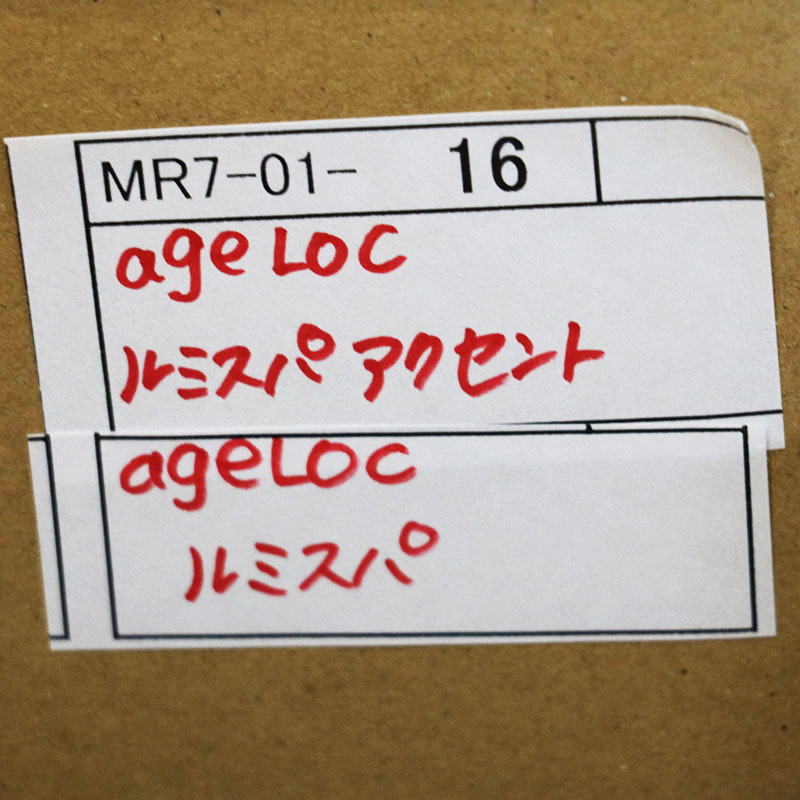 MR7-01- 16
ageLOC
ルミスパ アクセント
ageLOC
ルミスパ